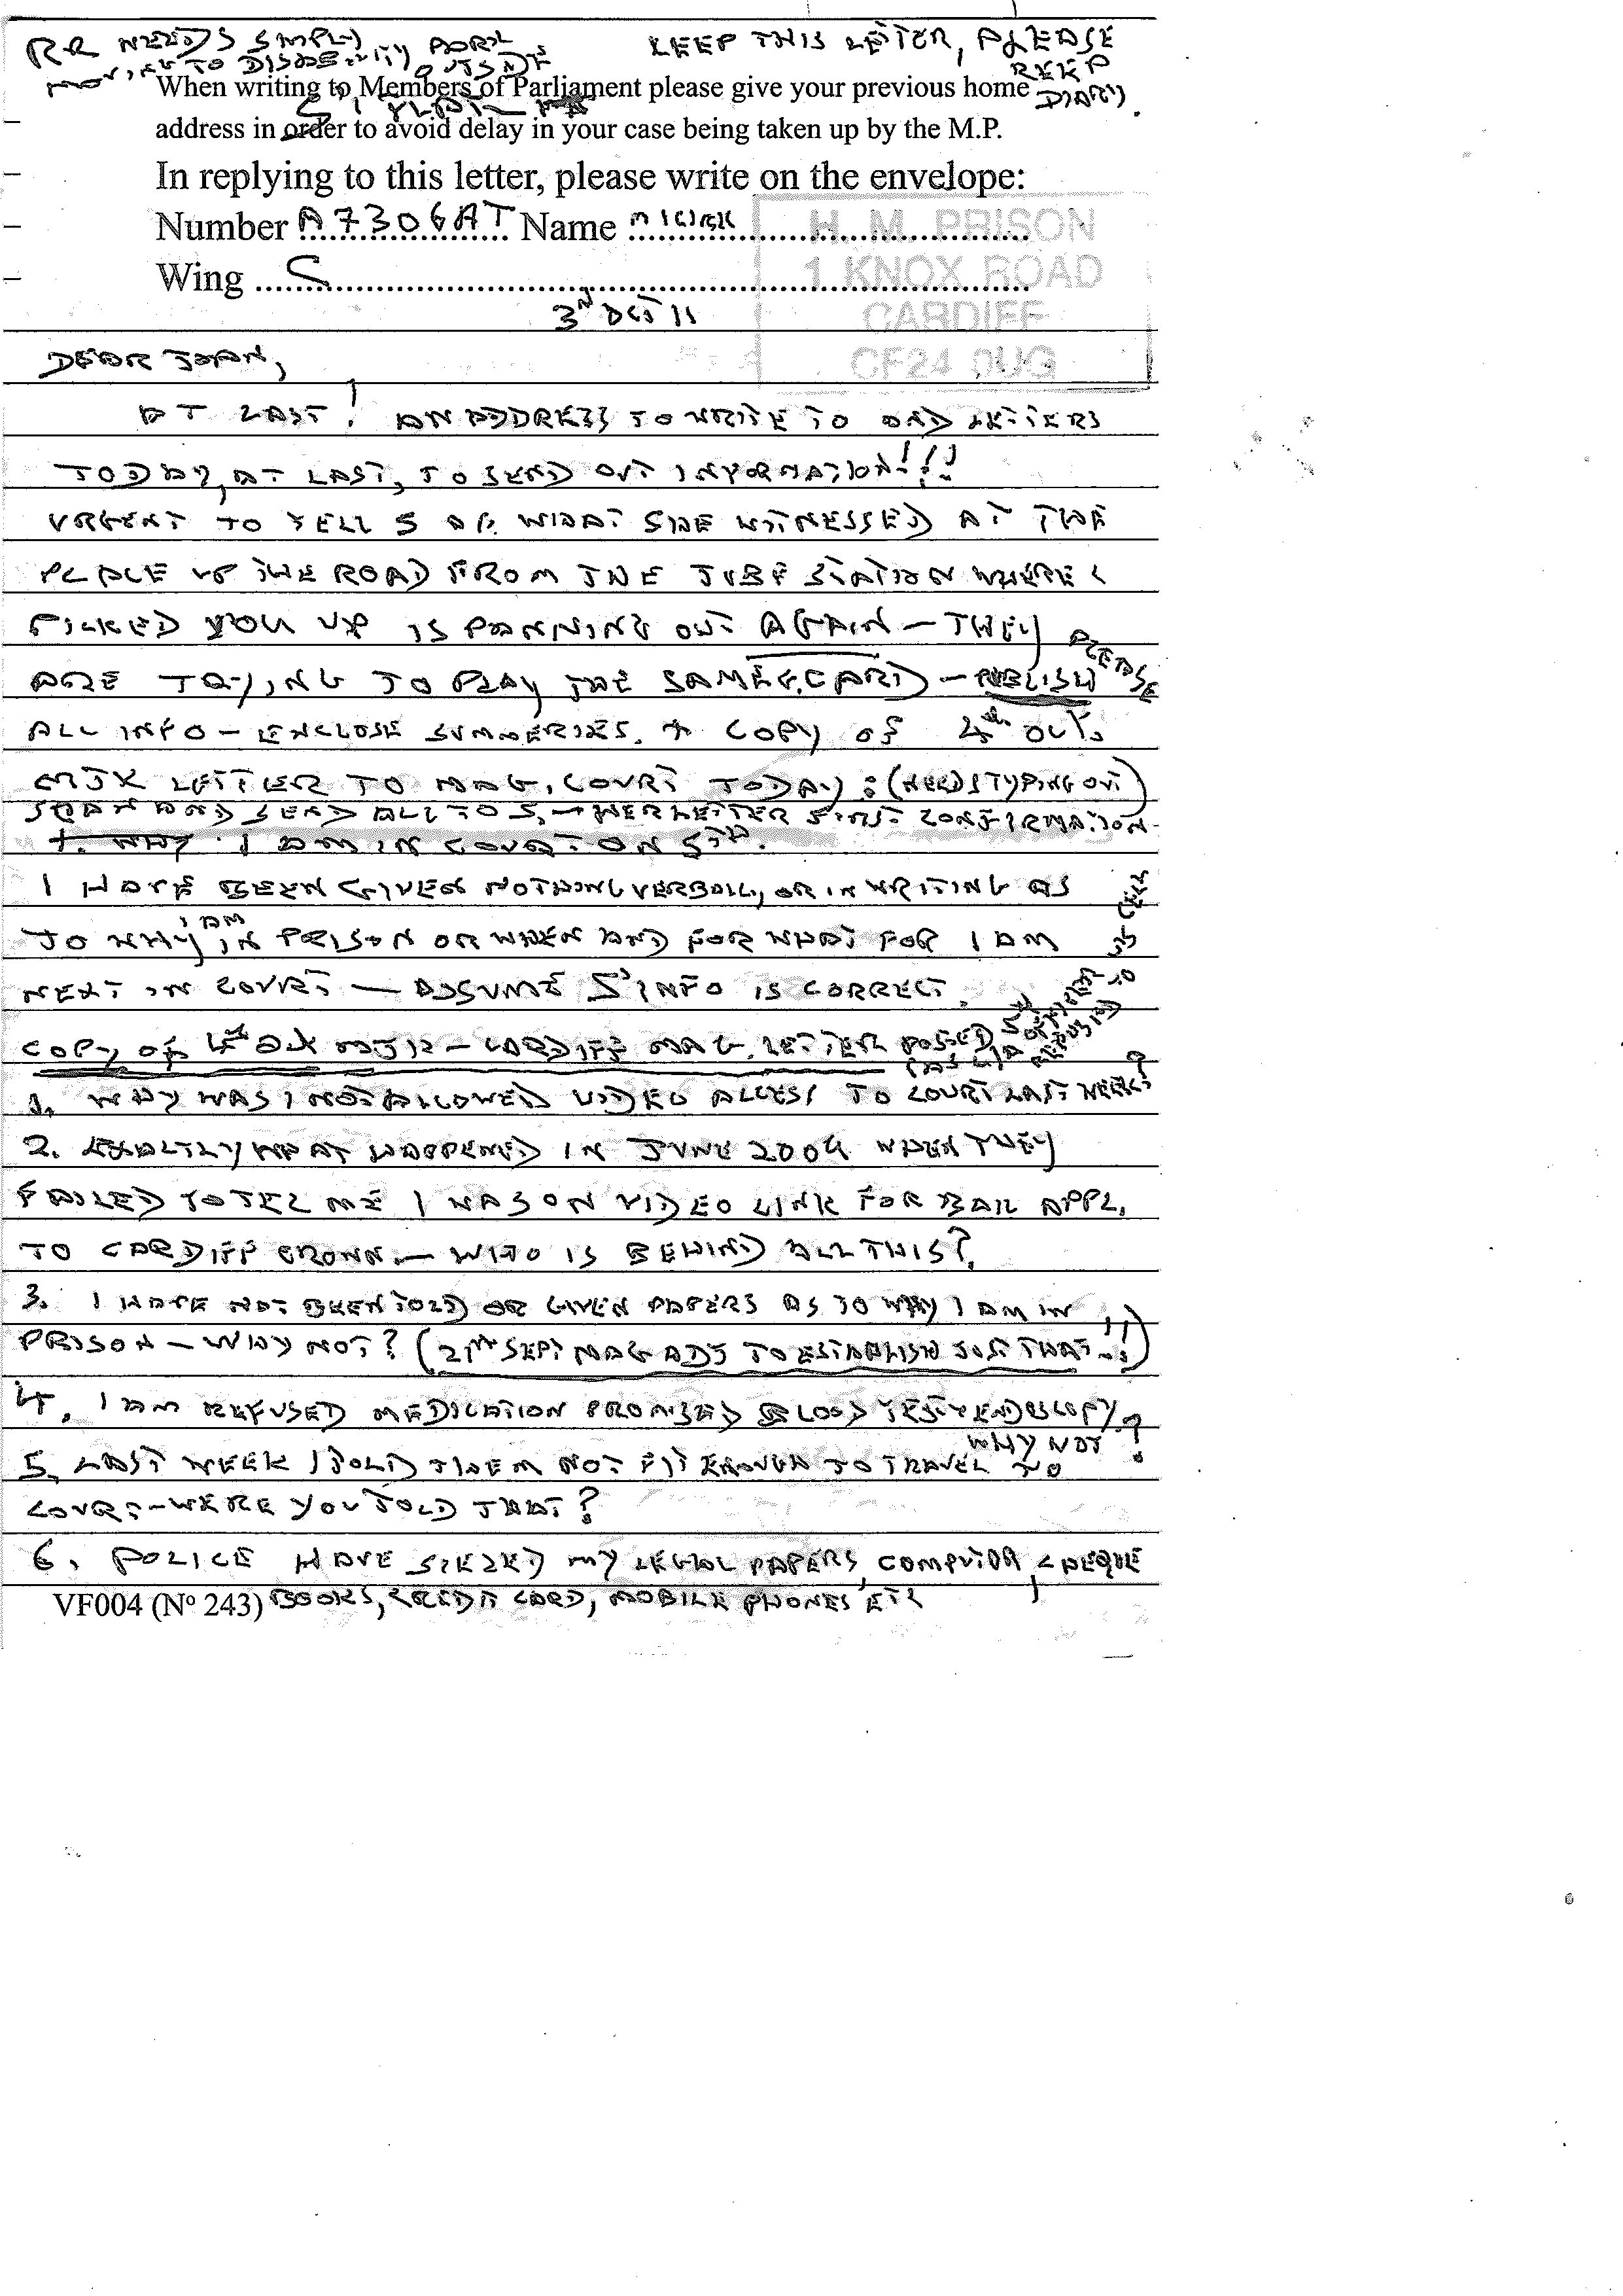 RR NEEDS SIMPLY
KEEP THIS LETTER, PLEASE
KEEP
DIARY.
When writing to Members of Parliament please give your previous home
address in order to avoid delay in your case being taken up by the M.P.
In replying to this letter, please write on the envelope:
Number A7306AT Name
Wing
H. M. PRISON
1 KNOX ROAD
CARDIFF
CF24 0UG
3RD OCT 11
DEAR
AT LAST! AN ADDRESS TO WRITE TO LETTERS
TODAY, AT LAST, TO SEND OUT INFORMATION!!!
URGENT TO TELL S WHAT SHE WITNESSED AT THE
PLACE UP THE ROAD FROM THE TUBE STATION WHERE I
PICKED YOU UP IS PANNING OUT AGAIN — THEY
ARE TRYING TO PLAY THE SAME CARD — PUBLISH PLEASE
ALL INFO — ENCLOSE SUMMERIES + COPY OF 4th OCT.
LETTER TO MAG. COURT TODAY: (NEEDS TYPING OUT)
SCAN AND SEND ALL TO S. — HER LETTER FIRST CONFIRMATION
I AM IN COURT ON 5TH.
I HAVE BEEN GIVEN NOTHING VERBALLY OR IN WRITING AS
TO WHY I AM IN PRISON OR WHEN AND FOR WHAT FOR I AM
NEXT IN COURT — ASSUME S' INFO IS CORRECT.
COPY OF 4th OCT — CARDIFF MAG. LETTER POSTED
1. WHY WAS I NOT ALLOWED VIDEO ACCESS TO COURT LAST WEEK?
2. EXACTLY WHAT HAPPENED IN JUNE 2009 WHEN THEY
FAILED TO TEL ME I WAS ON VIDEO LINK FOR BAIL APPL.
TO CARDIFF CROWN. — WHO IS BEHIND ALL THIS?
3. I HAVE NOT BEEN TOLD OR GIVEN PAPERS AS TO WHY I AM IN
PRISON — WHY NOT? (21st SEPT MAG ADJ TO ESTABLISH JUST THAT!!)
4. I AM REFUSED MEDICATION PROMISED BLOOD TEST
WHY NOT?
5. LAST WEEK I TOLD THEM NOT FIT ENOUGH TO TRAVEL TO
COURT — WERE YOU TOLD THAT?
6. POLICE HAVE SIEZED MY LEGAL PAPERS, COMPUTOR, CHEQUE
VF004 (Nº 243) BOOKS, CREDIT CARD, MOBILE PHONES ETC